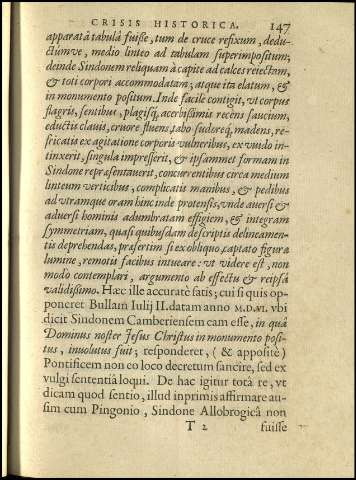 CRISIS HISTORICA. 147
apparat à tabulâ fuisse, tum de cruce refixum, dedu-
ctúmve, medio linteo ad tabulam superimpositum;
deinde Sindonem reliquam à capite ad calces reiectam,
& toti corpori accommodatam; atque ita elatum, &
in monumento positum. Inde facile contigit, vt corpus
flagris, sentibus, plagisq́, acerbissimis recens saucium,
eductis clauis, cruore fluens, tabo, sudoreq́, madens, re-
fricatis ex agitatione corporis vulneribus, ex vuido in-
tinxerit, singula impresserit, & ipsammet formam in
Sindone repræsentauerit, concurrentibus circa medium
linteum verticibus, complicatis manibus, & pedibus
ad vtramque oram hinc inde protensis, vnde auersi &
aduersi hominis adumbratam effigiem, & integram
symmetriam, quasi quibusdam descriptis delineamen-
tis deprehendas, præsertim si ex obliquo, captato figura
lumine, remotis facibus intueare: vt videre est, non
modo contemplari, argumento ab effectu & reipsâ
validissimo. Hæc ille accuratè satis; cui si quis op-
poneret Bullam Iulij II. datam anno M.D.VI. vbi
dicit Sindonem Camberiensem eam esse, in quâ
Dominus noster Jesus Christus in monumento posi-
tus, inuolutus fuit; responderet, (& appositè)
Pontificem non eo loco decretum sancire, sed ex
vulgi sententiâ loqui. De hac igitur totâ re, vt
dicam quod sentio, illud inprimis affirmare au-
sim cum Pingonio, Sindone Allobrogicâ non
T 2 fuisse